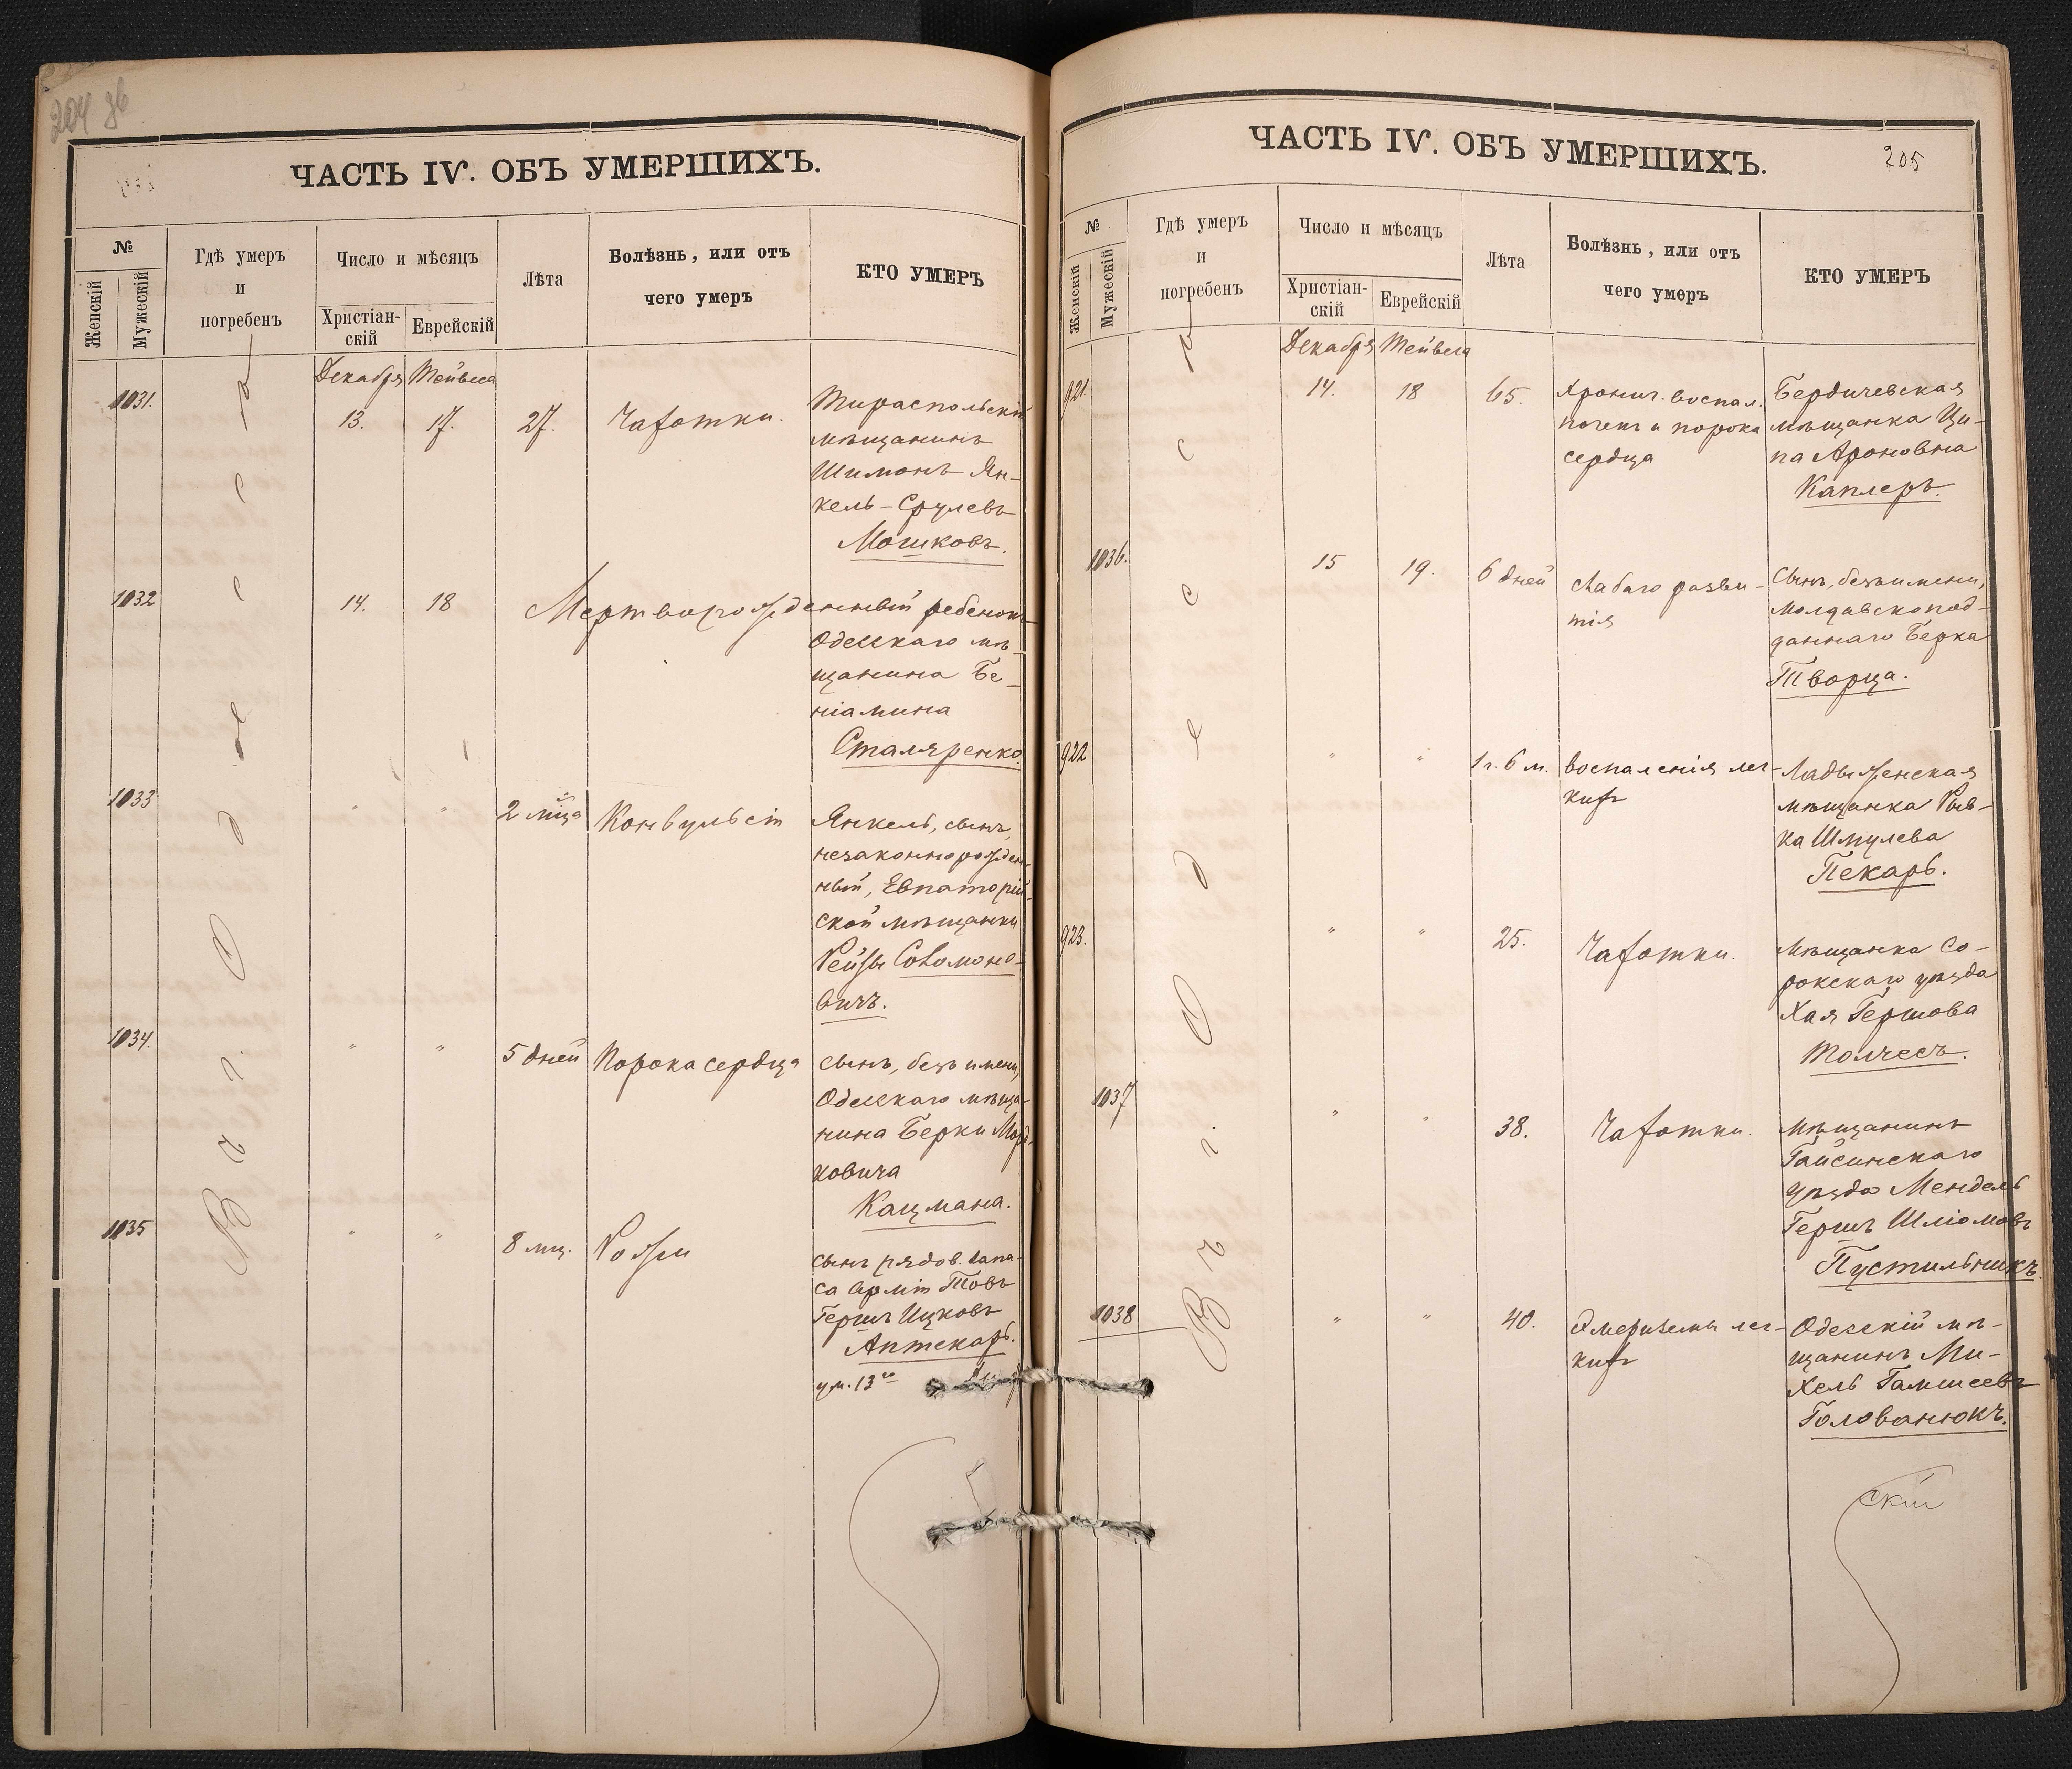 204 зв
ЧАСТЬ IV. ОБЪ УМЕРШИХЪ.
№
Женскій
Мужескій
Гдѣ умеръ
и
погребенъ
Число и мѣсяцъ
Христіан-
скій
Еврейскій
Лѣта
Болѣзнь, или отъ
чего умеръ
КТО УМЕРЪ
Въ г. Одесса
Декабря Тейвеса
1031. 13. 17. 27. Чахотки. Тираспольскій
мѣщанинъ
Шимонъ Ян-
кель-Срулевъ
Мошковъ.
1032 14. 18 Мертворожденный ребенокъ
Одесскаго мѣ-
щанина Бе-
ніамина
Сталяренко.
1033 " " 2 мѣс҃ца Конвульсій Янкель, сынъ,
незаконнорожден-
ный, Евпаторій-
ской мѣщанки
Рейзы Соломоно-
вичъ.
1034. " " 5 дней Порока сердца сынъ, безъ имени,
Одесскаго мѣща-
нина Берки Морд-
ковича
Кацмана.
1035 " " 8 мц. Рожи сынъ рядов. запа-
са арміи Товъ
Гершъ Ицковъ
Аптекарь.
ум. 13го
ЧАСТЬ IV. ОБЪ УМЕРШИХЪ.
205
№
Женскій
Мужескій
Гдѣ умеръ
и
погребенъ
Число и мѣсяцъ
Христіан-
скій
Еврейскій
Лѣта
Болѣзнь, или отъ
чего умеръ
КТО УМЕРЪ
Въ г. Одесса
Декабря Тейвеса
921. 14. 18 65. Хронич. воспал. Бердичевская
почекъ и порока мѣщанка Ци-
сердца па Ароновна
Каплеръ.
1036. 15 19. 6 дней слабаго разви- Сынъ, безъ имени,
тія Молдавскопод-
даннаго Берка
Творца.
922 " " 1 г. 6 м. воспаленія лег- Ладыженская
кихъ мѣщанка Рив-
ка Шмулева
Пекарь.
923. " " 25. Чахотки. Мѣщанка Со-
рокскаго уѣзда
Хая Гершова
Толчесъ.
1037 " " 38. Чахотки. мѣщанинъ
Гайсинскаго
уѣзда Мендель
Гершъ Шліомовъ
Пустильникъ.
1038 " " 40. Эмфиземы лег- Одесскій мѣ-
кихъ щанинъ Ми-
хель Гамшеевъ
Голованюкъ.
скій